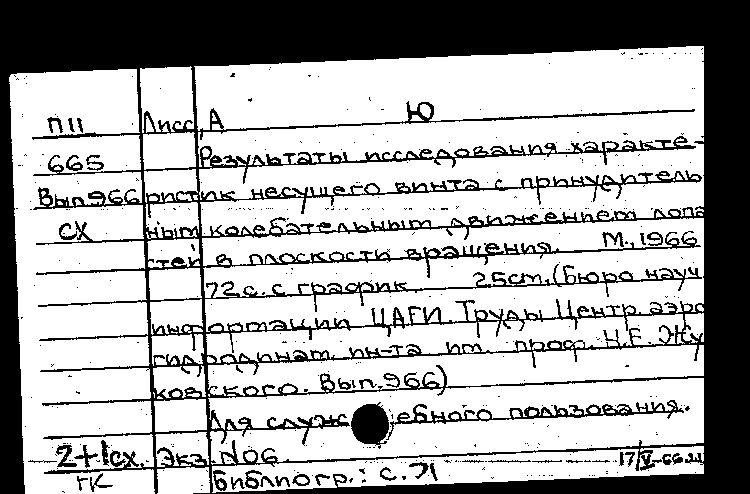 П11 Лисс, А Ю
665 Результаты исследования характе-
Вып.966 ристик несущего винта с принудитель
СХ ным колебательным движением лопа
стей в плоскости вращения. М., 1966
72 с. с график. 25см. (Бюро науч.
информации ЦАГИ. Труды Центр. аэро
гидродинам. ин-та им. проф. Н.Е. Жу
ковского. Вып. 966)
Для служебного пользования.
2+1сх. Экз. №06.
ГК Библиогр.: с. 71
17/V-66